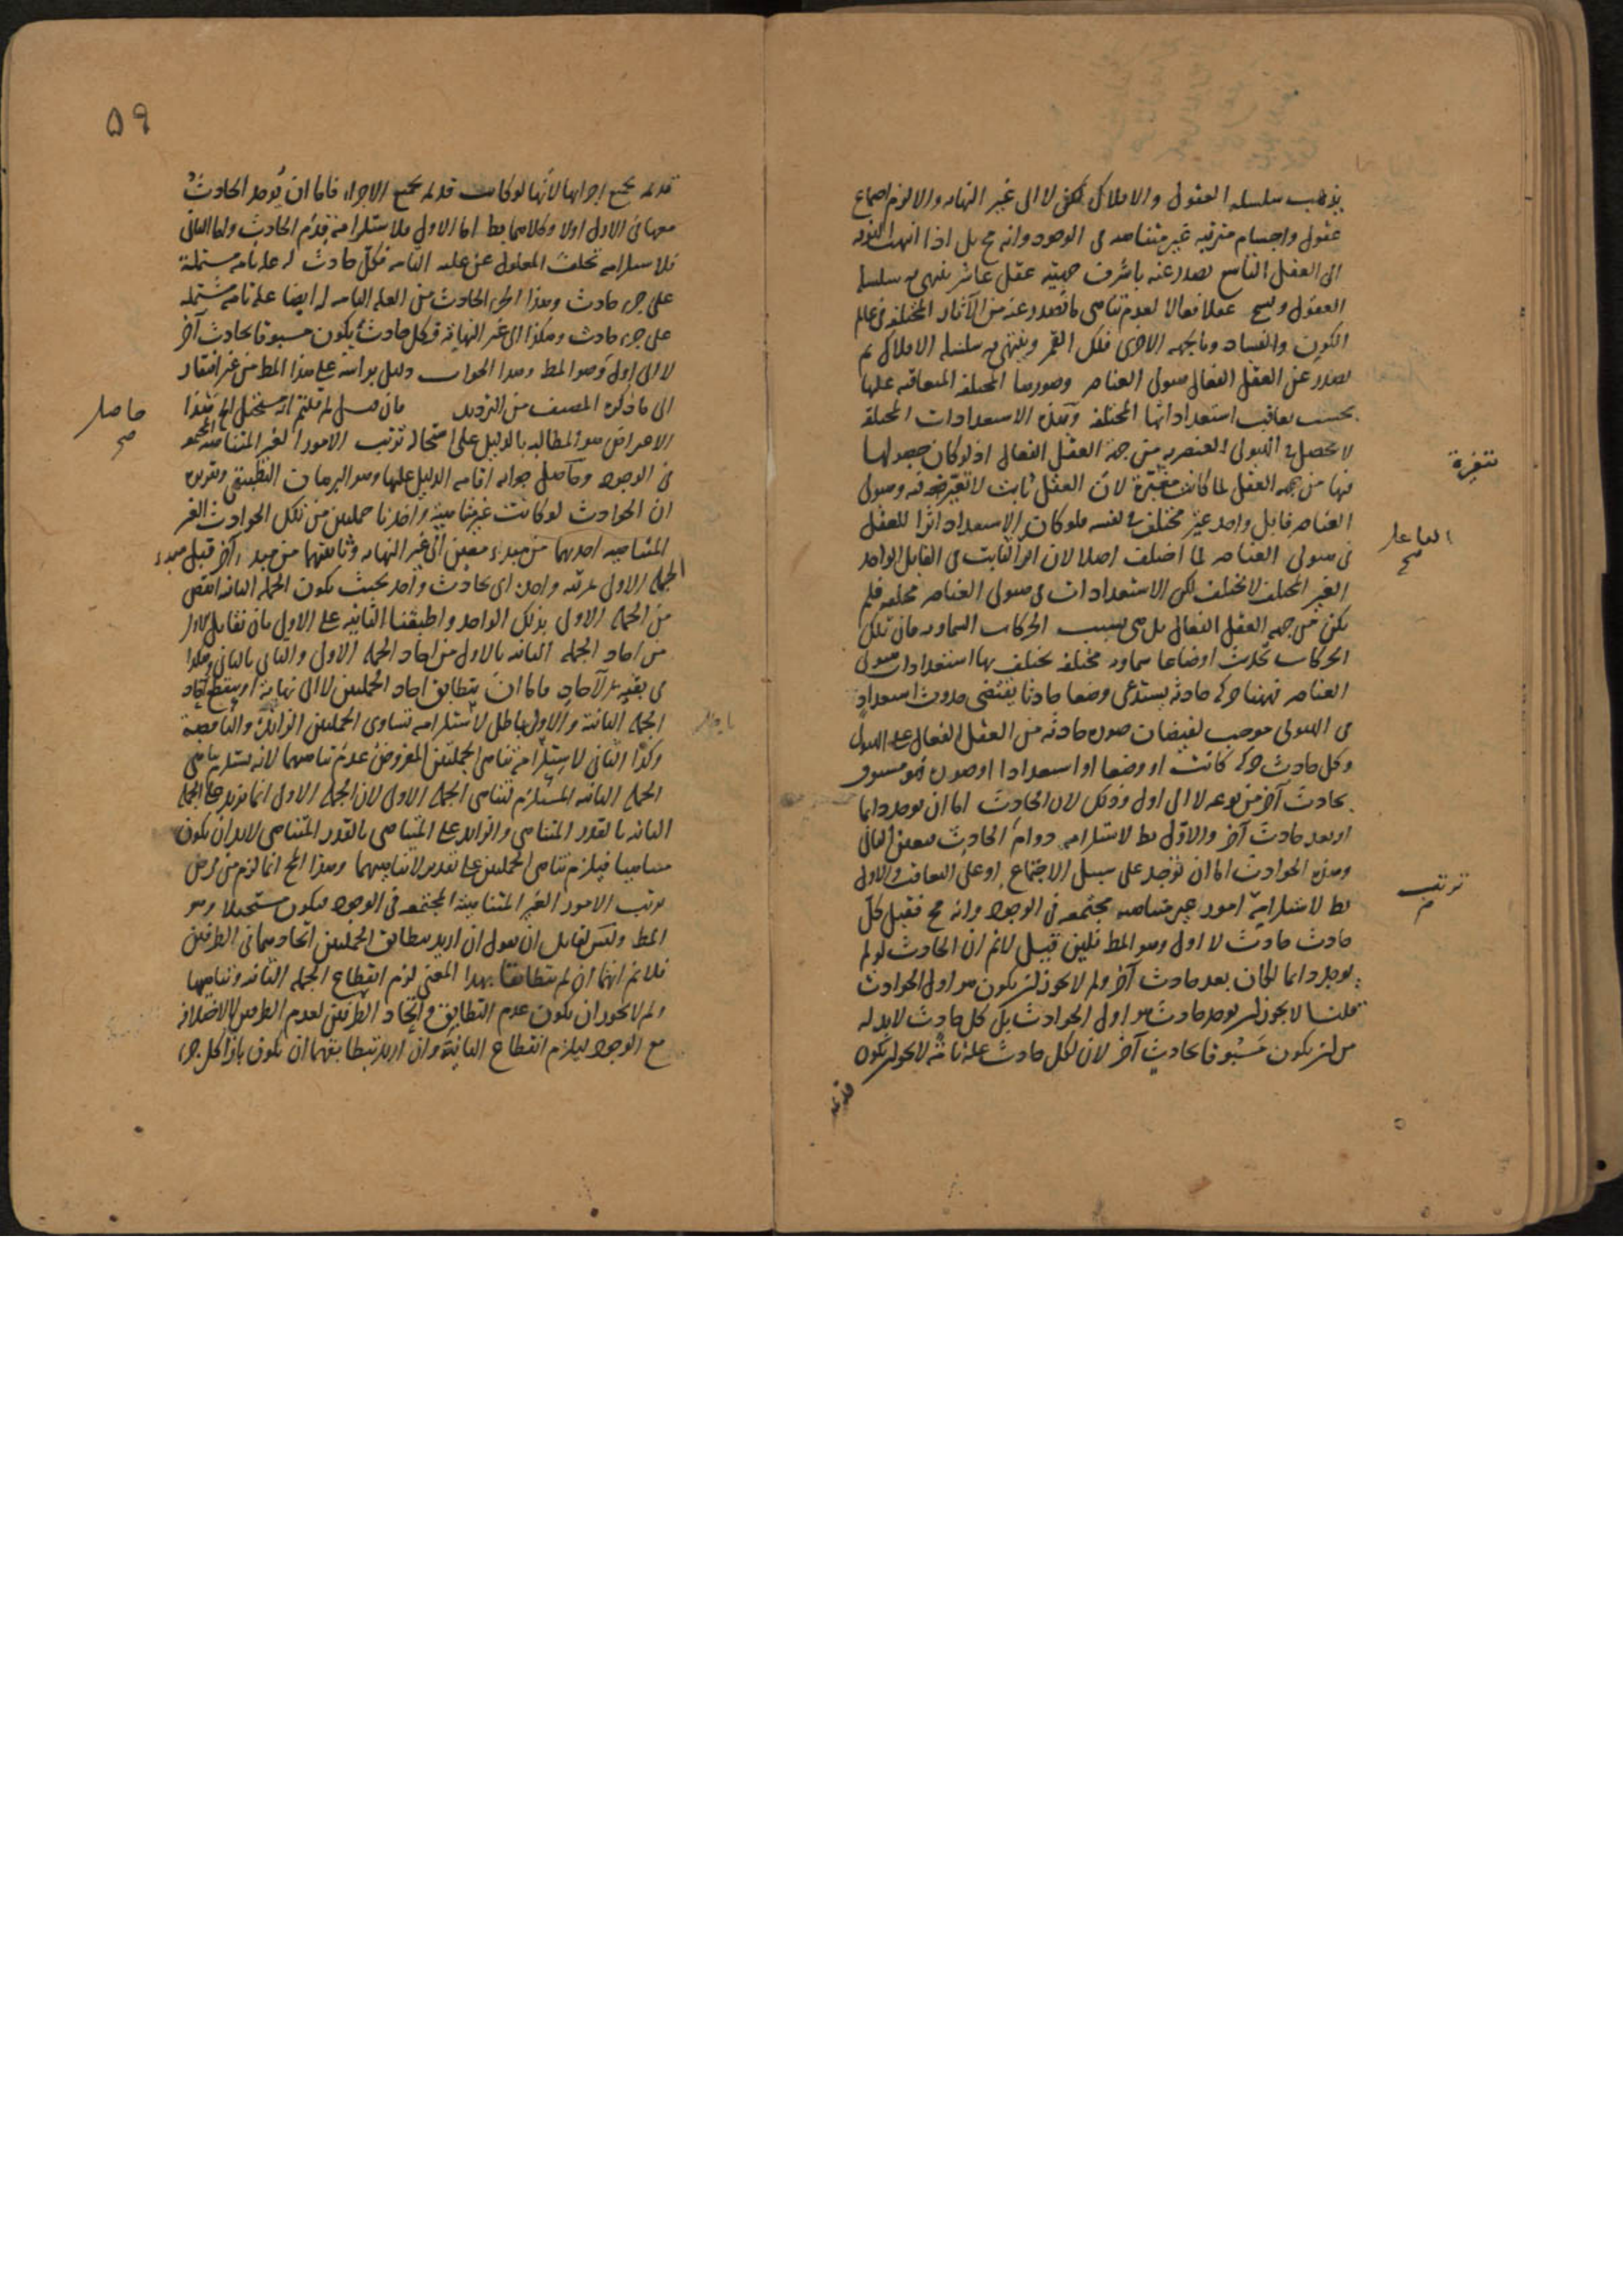 يذهب سلسله العقول والافلاك لكن لا الى غير النهايه والا لزم اجتماع
عقول واجسام مترتبه غير متناهيه فى الوجود وانه مح بل اذا انتهت النوبه
الى العقل التاسع يصدر عنه باشرف جهتيه عقل عاشر ينتهى به سلسله
العقول ويسمى عقلا فعالا لعدم تناهى ما يصدر عنه من الآثار المختلفه فى عالم
الكون والفساد وبالجهه الاخرى فلك القمر وينتهى به سلسله الافلاك ثم
يصدر عن العقل الفعال هيولى العناصر وصورها المختلفه المتعاقبه عليها
بحسب تعاقب استعداداتها المختلفه وهذه الاستعدادات المختلفه
لا تحصل فى الهيولى العنصريه من جهة العقل الفعال اذ لو كان حصولها
متغيرة
فيها من جهه العقل لما كانت متغيرة لان العقل ثابت لا تغير فيه وهيولى
العناصر قابل واحد غير مختلف فى نفسه فلو كان الاستعداد اثرا للعقل
الفاعل
صح
فى هيولى العناصر لما اختلف اصلا لان اثر الثابت فى القابل الواحد
الغير المختلف لا يختلف لكن الاستعدادات فى هيولى العناصر مختلفه فلم
يكن من جهه العقل الفعال بل هى بسبب الحركات السماويه فان تلك
الحركات تحدث اوضاعا سماويه مختلفه يختلف بها استعدادات هيولى
العناصر فههنا حركه حادثه يستدعى وضعا حادثا يقتضى حدوث استعداد
فى الهيولى موجب لفيضان صوره حادثه من العقل الفعال على الهيولى
وكل حادث حركه كانت او وضعا او استعدادا او صوره فهو مسبوق
بحادث آخر من نوعه لا الى اول وذلك لان الحادث اما ان يوجد دايما
او بعد حادث آخر والاول بط لاستلزامه دوام الحادث فتعين الثانى
وهذه الحوادث اما ان توجد على سبيل الاجتماع او على التعاقب والاول
ترتيب
بط لاستلزامه امور غير متناهيه مجتمعه فى الوجود وانه مح فقبل كل
حادث حادث لا اول وهو المط فلين قيل لانم ان الحادث لو لم
يوجد دايما لكان بعد حادث آخر ولم لا يجوز ان يكون هو اول الحوادث
قلنا لا يجوز ان يوجد حادث هو اول الحوادث بل كل حادث لابد له
من ان يكون مسبوقا بحادث آخر لان لكل حادث علة تامة لا يجوز ان يكون
قديمه
۵۹
قديمه بجميع اجزائها لأنها لو كانت قديمه بجميع الاجزاء فاما ان يوجد الحادث
معها فى الازل اولا وكلاهما بط اما الاول فلاستلزامه قدم الحادث واما الثانى
فلاستلزامه تخلف المعلول عن علته التامه فكل حادث له علة تامه مشتملة
على جزء حادث وهذا الجزء الحادث من العله التامه له ايضا علة تامه مشتمله
على جزء حادث وهكذا الى غير النهاية فكل حادث يكون مسبوقا بحادث آخر
لا الى اول وهو المط وهذا الجواب دليل براسه على هذا المط من غير افتقار
الى ما ذكره المصنف من الترديد فان قيل لم قلتم انه يستحيل الخ هذا
حاصل
صح
الاعراض هو المطالبه بالدليل على استحاله ترتب الامور الغير المتناهيه المجتمعه
فى الوجود وحاصل جوابه اقامه الدليل عليها وهو البرهان التطبيقى وتقريره
ان الحوادث لو كانت غير متناهية واخذنا جملتين من تلك الحوادث الغير
المتناهيه احديهما من مبدء معين الى غير النهايه وثانيتهما من مبدء آخر قبل مبدء
الجمله الاولى بمرتبه واحده اى بحادث واحد بحيث يكون الجمله الثانيه انقص
من الجمله الاولى بذلك الواحد واطبقنا الثانيه على الاولى بان نقابل الاول
من احاد الجمله الثانيه بالاول من احاد الجمله الاولى والثانى بالثانى وهكذا
فى بقيه الآحاد فاما ان يتطابق احاد الجملتين لا الى نهايه او ينقطع آحاد
الجمله الثانية والاول باطل لاستلزامه تساوى الجملتين الزائدة والناقصة
وكذا الثانى لاستلزامه تناهى الجملتين المفروض عدم تناهيهما لانه يستلزم تناهى
الجمله الثانيه المستلزم لتناهى الجمله الاولى لان الجمله الاولى انما تزيد على الجمله
الثانيه بالقدر المتناهى والزايد على المتناهى بالقدر المتناهى لابد ان يكون
متناهيا فيلزم تناهى الجملتين على تقدير لا تناهيهما وهذا المح انما لزم من فرض
ترتب الامور الغير المتناهية المجتمعه فى الوجود فيكون مستحيلا وهو
المط وليس لقايل ان يقول ان اريد بتطابق الجملتين اتحادهما فى الطرفين
فلا نم انهما ان لم يتطابقا بهذا المعنى لزم انقطاع الجمله الثانيه وتناهيها
ولم لا يجوز ان يكون عدم التطابق واتحاد الطرفين لعدم الطرفين لا لاختلافه
مع الوجود ليلزم انقطاع الثانية وان اريد بتطابقهما ان يكون بازاء كل جزء